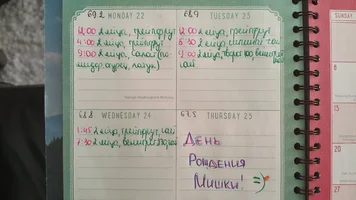 69.2 MONDAY 22
12:00 2 яйца, грейпфрут
4:00 2 яйца, грейпфрут
9:00 2 яйца, салат (по-
мидор, огурец,
68.9 TUESDAY 23
12:00 2 яйца, грейпфрут
2 яйца
9:00 2 яйца,
чай
68.8 WEDNESDAY 24
1:45 2 яйца, грейпфрут, чай
7:30 2 яйца,
67.5 THURSDAY 25
ДЕНЬ
РОЖДЕНИЯ
МИШКИ! =)